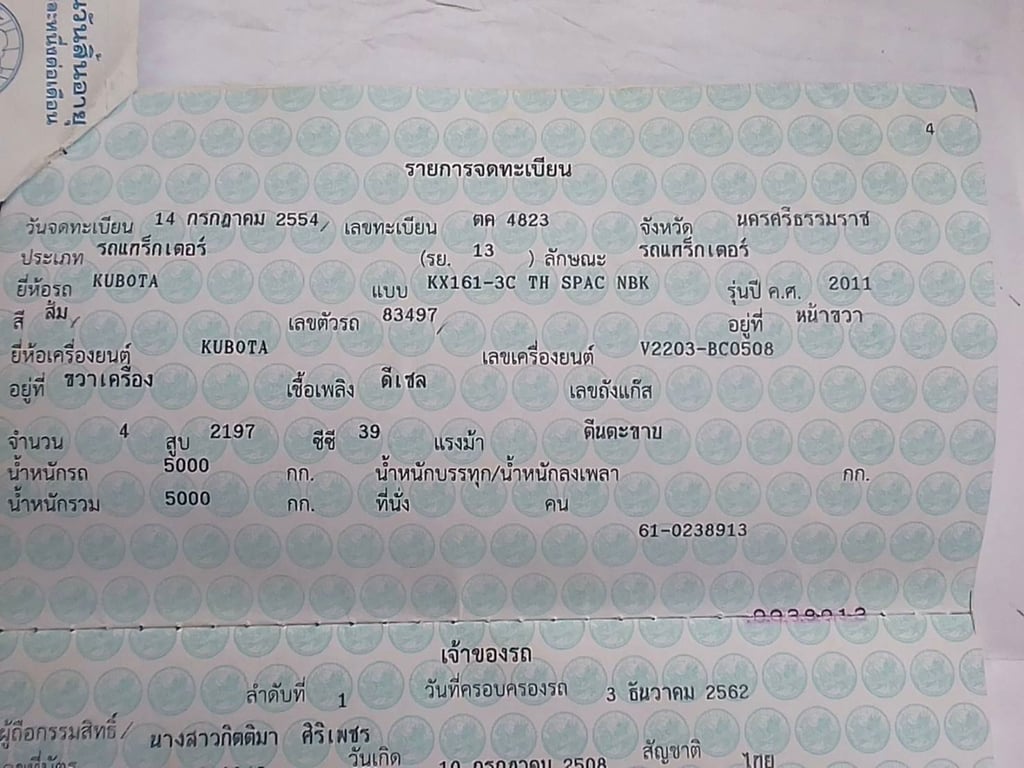 นวันสิ้นอายุ
ละหนึ่งต่อเดือน
4
รายการจดทะเบียน
วันจดทะเบียน 14 กรกฎาคม 2554/ เลขทะเบียน ตค 4823 จังหวัด นครศรีธรรมราช
ประเภท รถแทร็กเตอร์ (รย. 13 ) ลักษณะ รถแทร็กเตอร์
ยี่ห้อรถ KUBOTA แบบ KX161-3C TH SPAC NBK รุ่นปี ค.ศ. 2011
สี ส้ม/ เลขตัวรถ 83497/ อยู่ที่ หน้าขวา
ยี่ห้อเครื่องยนต์ KUBOTA เลขเครื่องยนต์ V2203-BC0508
อยู่ที่ ขวาเครื่อง เชื้อเพลิง ดีเซล เลขถังแก๊ส
จำนวน 4 สูบ 2197 ซีซี 39 แรงม้า ตีนตะขาบ
น้ำหนักรถ 5000 กก. น้ำหนักบรรทุก/น้ำหนักลงเพลา กก.
น้ำหนักรวม 5000 กก. ที่นั่ง คน
61-0238913
เจ้าของรถ
ลำดับที่ 1 วันที่ครอบครองรถ 3 ธันวาคม 2562
ผู้ถือกรรมสิทธิ์/ นางสาวกิตติมา ศิริเพชร
วันเกิด 10 กรกฎาคม 2508 สัญชาติ ไทย